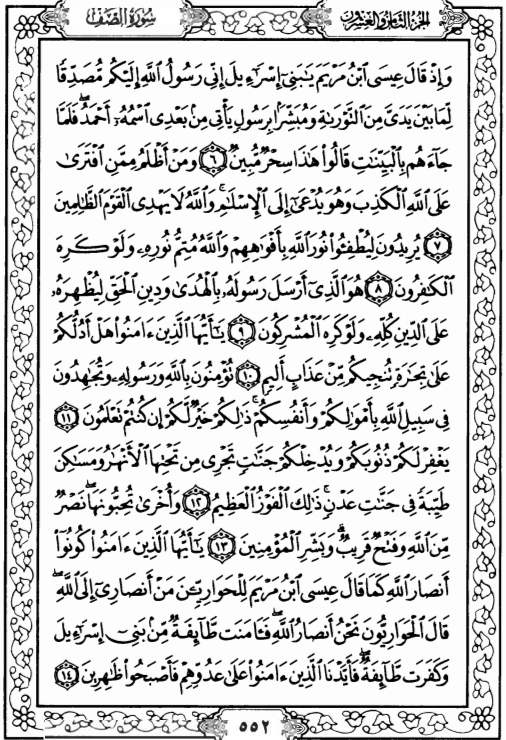 الجزء الثامن والعشرون
سورة الصف
وَإِذْ قَالَ عِيسَى ٱبْنُ مَرْيَمَ يَٰبَنِىٓ إِسْرَٰٓءِيلَ إِنِّى رَسُولُ ٱللَّهِ إِلَيْكُم مُّصَدِّقًا
لِّمَا بَيْنَ يَدَىَّ مِنَ ٱلتَّوْرَىٰةِ وَمُبَشِّرًۢا بِرَسُولٍ يَأْتِى مِنۢ بَعْدِى ٱسْمُهُۥٓ أَحْمَدُۖ فَلَمَّا
جَآءَهُم بِٱلْبَيِّنَٰتِ قَالُوا۟ هَٰذَا سِحْرٌ مُّبِينٌ ٦ وَمَنْ أَظْلَمُ مِمَّنِ ٱفْتَرَىٰ
عَلَى ٱللَّهِ ٱلْكَذِبَ وَهُوَ يُدْعَىٰٓ إِلَى ٱلْإِسْلَٰمِۚ وَٱللَّهُ لَا يَهْدِى ٱلْقَوْمَ ٱلظَّٰلِمِينَ
٧ يُرِيدُونَ لِيُطْفِـُٔوا۟ نُورَ ٱللَّهِ بِأَفْوَٰهِهِمْ وَٱللَّهُ مُتِمُّ نُورِهِۦ وَلَوْ كَرِهَ
ٱلْكَٰفِرُونَ ٨ هُوَ ٱلَّذِىٓ أَرْسَلَ رَسُولَهُۥ بِٱلْهُدَىٰ وَدِينِ ٱلْحَقِّ لِيُظْهِرَهُۥ
عَلَى ٱلدِّينِ كُلِّهِۦ وَلَوْ كَرِهَ ٱلْمُشْرِكُونَ ٩ يَٰٓأَيُّهَا ٱلَّذِينَ ءَامَنُوا۟ هَلْ أَدُلُّكُمْ
عَلَىٰ تِجَٰرَةٍ تُنجِيكُم مِّنْ عَذَابٍ أَلِيمٍ ١٠ تُؤْمِنُونَ بِٱللَّهِ وَرَسُولِهِۦ وَتُجَٰهِدُونَ
فِى سَبِيلِ ٱللَّهِ بِأَمْوَٰلِكُمْ وَأَنفُسِكُمْۚ ذَٰلِكُمْ خَيْرٌ لَّكُمْ إِن كُنتُمْ تَعْلَمُونَ ١١
يَغْفِرْ لَكُمْ ذُنُوبَكُمْ وَيُدْخِلْكُمْ جَنَّٰتٍ تَجْرِى مِن تَحْتِهَا ٱلْأَنْهَٰرُ وَمَسَٰكِنَ
طَيِّبَةً فِى جَنَّٰتِ عَدْنٍۚ ذَٰلِكَ ٱلْفَوْزُ ٱلْعَظِيمُ ١٢ وَأُخْرَىٰ تُحِبُّونَهَاۖ نَصْرٌ
مِّنَ ٱللَّهِ وَفَتْحٌ قَرِيبٌۗ وَبَشِّرِ ٱلْمُؤْمِنِينَ ١٣ يَٰٓأَيُّهَا ٱلَّذِينَ ءَامَنُوا۟ كُونُوٓا۟
أَنصَارَ ٱللَّهِ كَمَا قَالَ عِيسَى ٱبْنُ مَرْيَمَ لِلْحَوَارِيِّـۧنَ مَنْ أَنصَارِىٓ إِلَى ٱللَّهِۖ
قَالَ ٱلْحَوَارِيُّونَ نَحْنُ أَنصَارُ ٱللَّهِۖ فَـَٔامَنَت طَّآئِفَةٌ مِّنۢ بَنِىٓ إِسْرَٰٓءِيلَ
وَكَفَرَت طَّآئِفَةٌۖ فَأَيَّدْنَا ٱلَّذِينَ ءَامَنُوا۟ عَلَىٰ عَدُوِّهِمْ فَأَصْبَحُوا۟ ظَٰهِرِينَ ١٤
٥٥٢